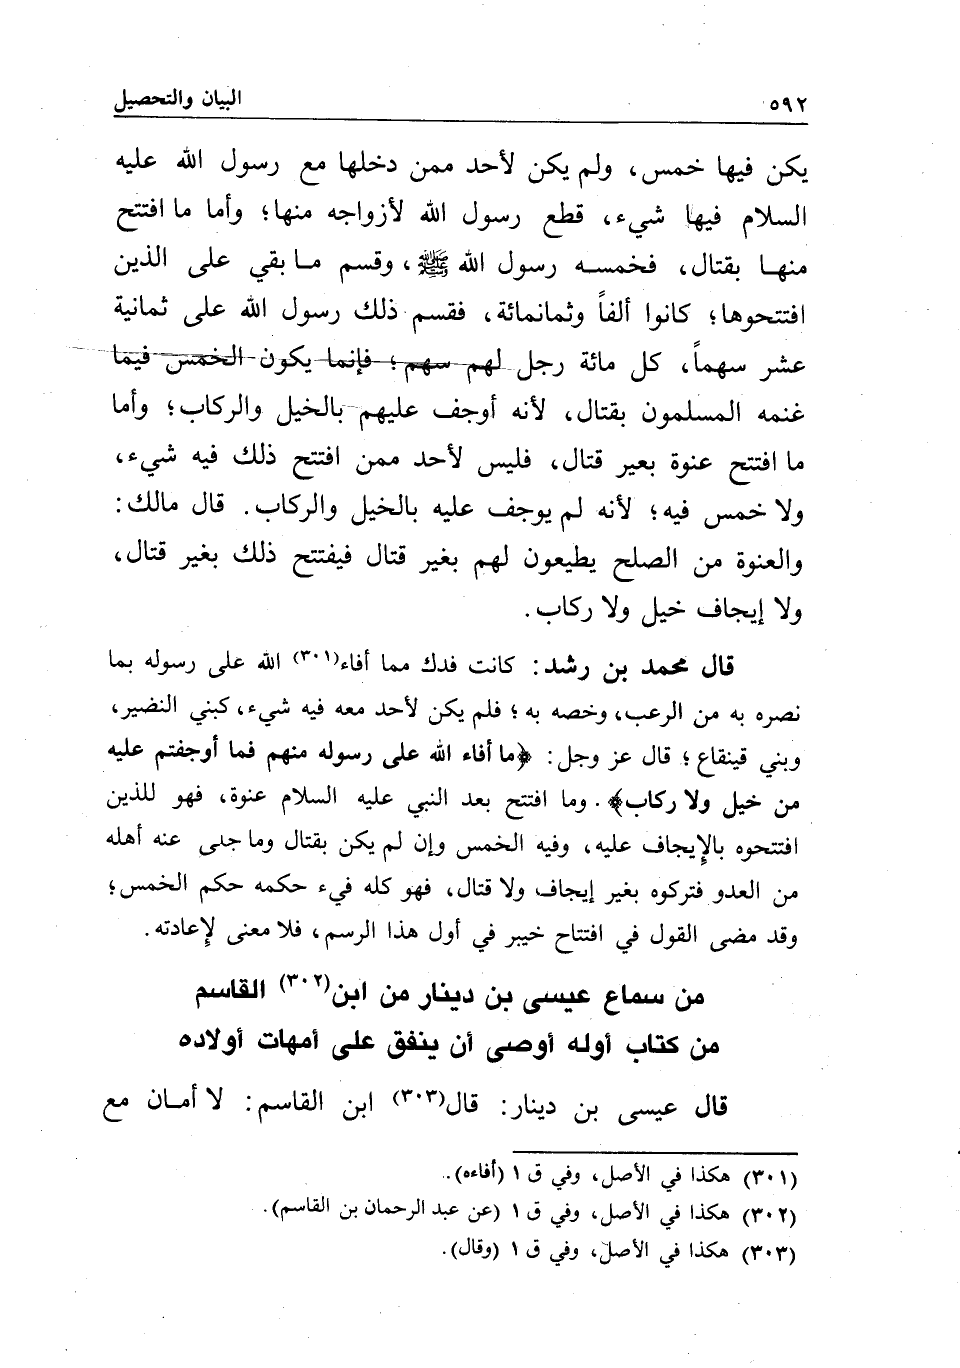 ٥٩٢ البيان والتحصيل
يكن فيها خمس، ولم يكن لأحد ممن دخلها مع رسول الله عليه
السلام فيها شيء، قطع رسول الله لأزواجه منها؛ وأما ما افتتح
منها بقتال، فخمسه رسول الله ﷺ، وقسم ما بقي على الذين
افتتحوها؛ كانوا ألفاً وثمانمائة، فقسم ذلك رسول الله على ثمانية
عشر سهماً، كل مائة رجل لهم سهم؛ فإنما يكون الخمس فيما
غنمه المسلمون بقتال، لأنه أوجف عليهم بالخيل والركاب؛ وأما
ما افتتح عنوة بعير قتال، فليس لأحد ممن افتتح ذلك فيه شيء،
ولا خمس فيه؛ لأنه لم يوجف عليه بالخيل والركاب. قال مالك:
والعنوة من الصلح يطيعون لهم بغير قتال فيفتتح ذلك بغير قتال،
ولا إيجاف خيل ولا ركاب.
قال محمد بن رشد: كانت فدك مما أفاء(٣٠١) الله على رسوله بما
نصره به من الرعب، وخصه به؛ فلم يكن لأحد معه فيه شيء، كبني النضير،
وبني قينقاع؛ قال عز وجل: ﴿ما أفاء الله على رسوله منهم فما أوجفتم عليه
من خيل ولا ركاب﴾. وما افتتح بعد النبي عليه السلام عنوة، فهو للذين
افتتحوه بالإيجاف عليه، وفيه الخمس وإن لم يكن بقتال وما جلى عنه أهله
من العدو فتركوه بغير إيجاف ولا قتال، فهو كله فيء حكمه حكم الخمس؛
وقد مضى القول في افتتاح خيبر في أول هذا الرسم، فلا معنى لإعادته.
من سماع عيسى بن دينار من ابن(٣٠٢) القاسم
من كتاب أوله أوصى أن ينفق على أمهات أولاده
قال عيسى بن دينار: قال(٣٠٣) ابن القاسم: لا أمان مع
(٣٠١) هكذا في الأصل، وفي ق ١ (أفاءه).
(٣٠٢) هكذا في الأصل، وفي ق ١ (عن عبد الرحمان بن القاسم).
(٣٠٣) هكذا في الأصل، وفي ق ١ (وقال).